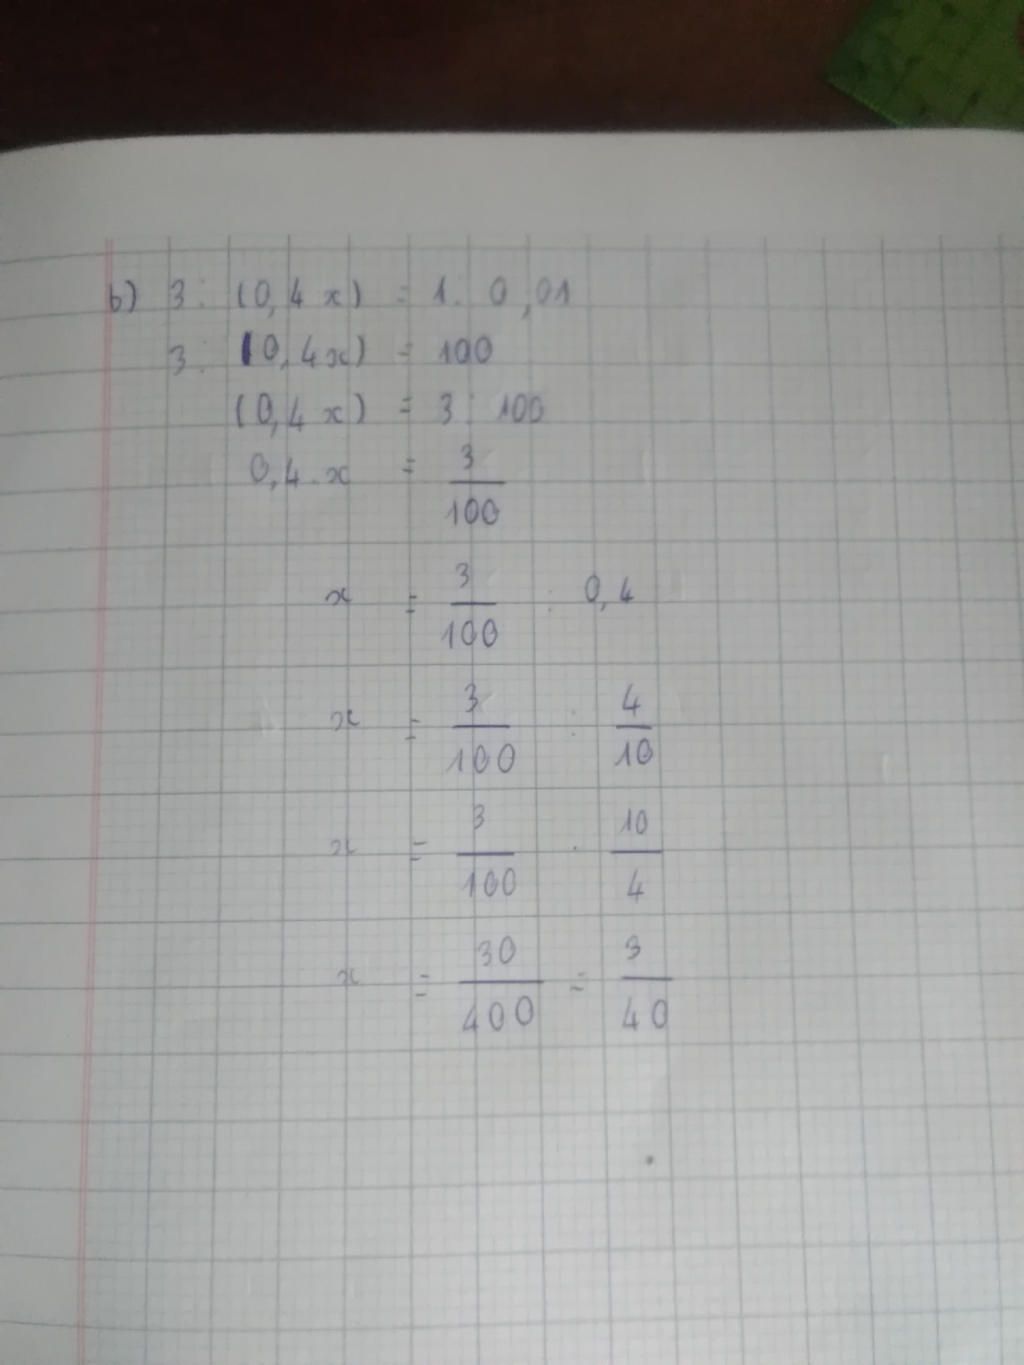 b) 3 : (0,4 x) = 1 : 0,01
3 : (0,4x) = 100
(0,4 x) = 3 : 100
0,4 . x = 3/100
x = 3/100 : 0,4
x = 3/100 : 4/10
x = 3/100 . 10/4
x = 30/400 = 3/40